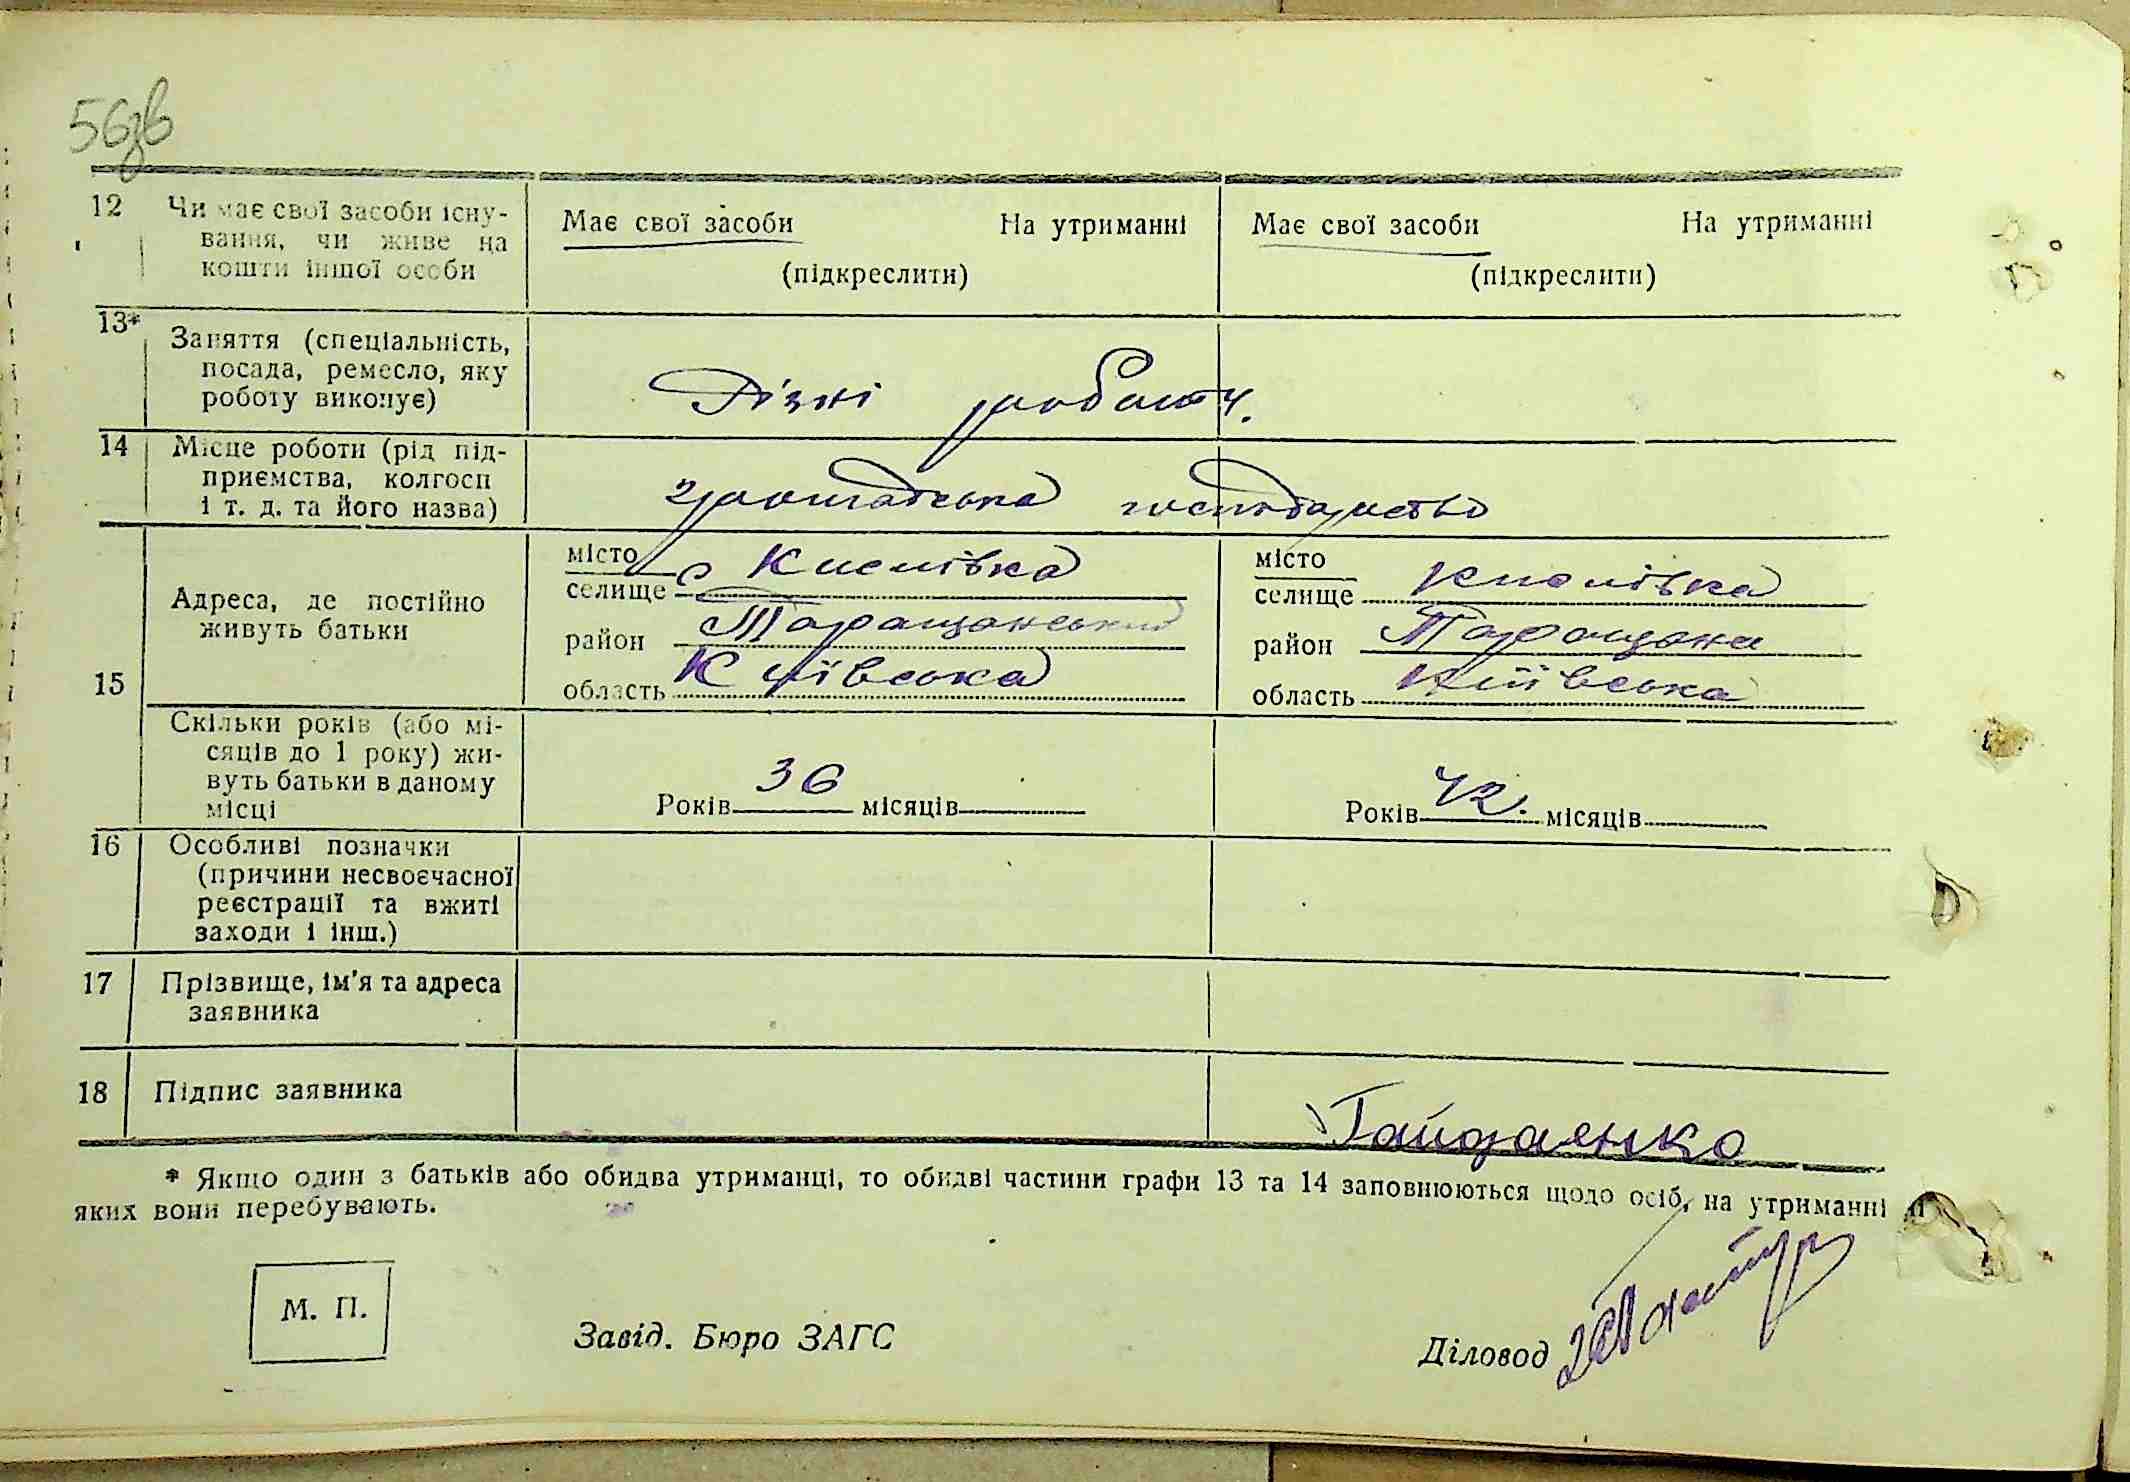 56зв
12 Чи має свої засоби існу-
вання, чи живе на
кошти іншої особи
Має свої засоби На утриманні
(підкреслити)
Має свої засоби На утриманні
(підкреслити)
13* Заняття (спеціальність,
посада, ремесло, яку
роботу виконує)
Різні роботи.
14 Місце роботи (рід під-
приємства, колгосп
і т. д. та його назва)
громадська господарство
15
Адреса, де постійно
живуть батьки
місто
селище с Кислівка
район Таращанський
область Київська
місто
селище Кислівка
район Таращана
область Київська
Скільки років (або мі-
сяців до 1 року) жи-
вуть батьки в даному
місці
Років 36 місяців
Років 42. місяців
16 Особливі позначки
(причини несвоєчасної
реєстрації та вжиті
заходи і інш.)
17 Прізвище, ім'я та адреса
заявника
18 Підпис заявника
Гайдаянко
* Якщо один з батьків або обидва утриманці, то обидві частини графи 13 та 14 заповнюються щодо осіб, на утриманні
яких вони перебувають.
М. П.
Завід. Бюро ЗАГС
Діловод